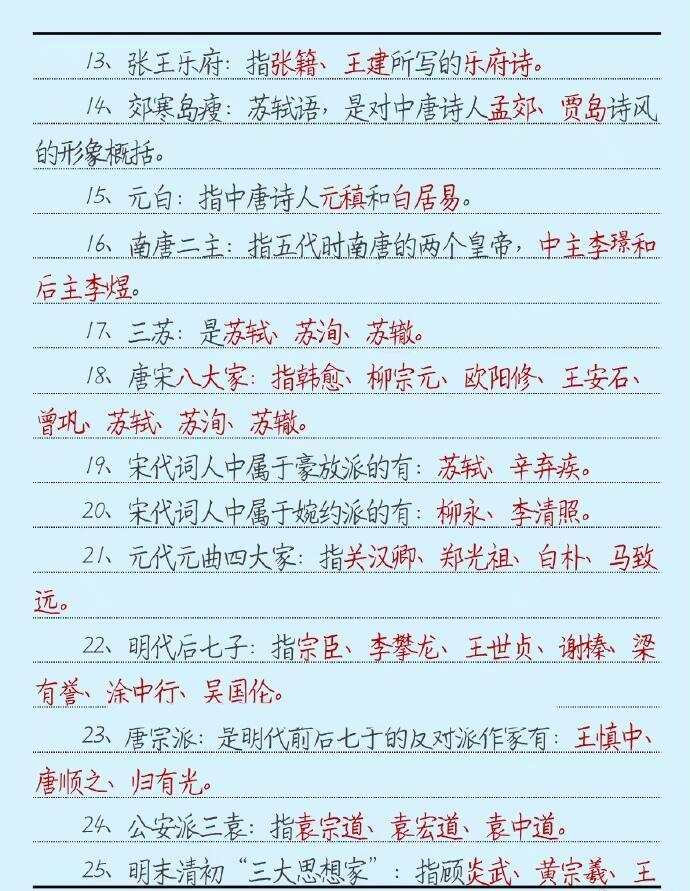 13、张王乐府：指张籍、王建所写的乐府诗。
14、郊寒岛瘦：苏轼语，是对中唐诗人孟郊、贾岛诗风
的形象概括。
15、元白：指中唐诗人元稹和白居易。
16、南唐二主：指五代时南唐的两个皇帝，中主李璟和
后主李煜。
17、三苏：是苏轼、苏洵、苏辙。
18、唐宋八大家：指韩愈、柳宗元、欧阳修、王安石、
曾巩、苏轼、苏洵、苏辙。
19、宋代词人中属于豪放派的有：苏轼、辛弃疾。
20、宋代词人中属于婉约派的有：柳永、李清照。
21、元代元曲四大家：指关汉卿、郑光祖、白朴、马致
远。
22、明代后七子：指宗臣、李攀龙、王世贞、谢榛、梁
有誉、涂中行、吴国伦。
23、唐宗派：是明代前后七于的反对派作家有：王慎中、
唐顺之、归有光。
24、公安派三袁：指袁宗道、袁宏道、袁中道。
25、明末清初“三大思想家”：指顾炎武、黄宗羲、王